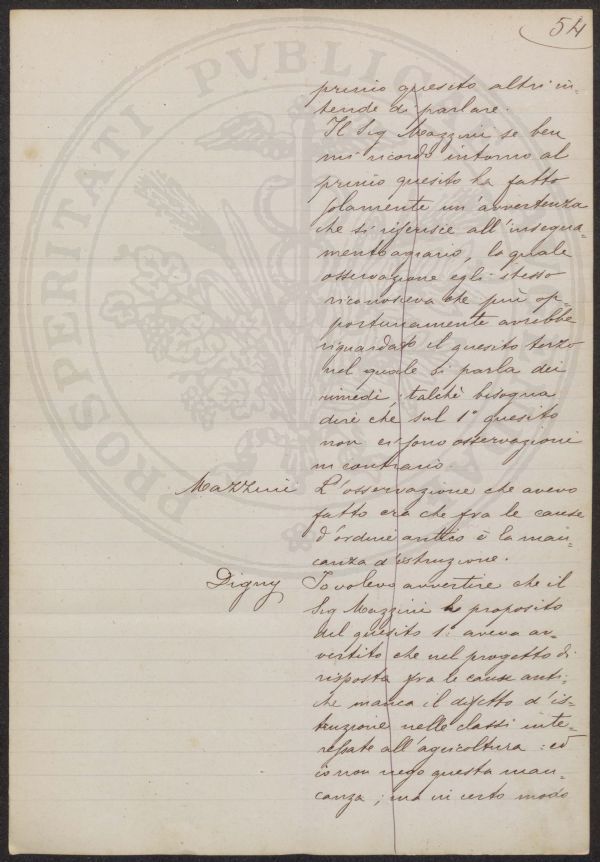 54
primo quesito altri in=
tende di parlare.
Il Sig Mazzini se ben
mi ricordo intorno al
primo quesito ha fatto
solamente un'avvertenza
che si riferisce all'insegna=
mento agrario, la quale
osservazione egli stesso
riconosceva che più op=
portunamente avrebbe
riguardato il quesito terzo
nel quale si parla dei
rimedi, talchè bisogna
dire che sul 1° quesito
non ci sono osservazioni
in contrario.
Mazzini L'osservazione che avevo
fatto era che fra le cause
d'ordine antico è la man=
canza d'istruzione.
Digny Io volevo avvertire che il
Sig Mazzini a proposito
del quesito 1: aveva av=
vertito che nel progetto di
risposta fra le cause anti=
che manca il difetto d'is=
truzione nelle classi inte=
ressate all'agricoltura: ed
io non nego questa man=
canza; ma in certo modo
PROSPERITATI PVBLICAE